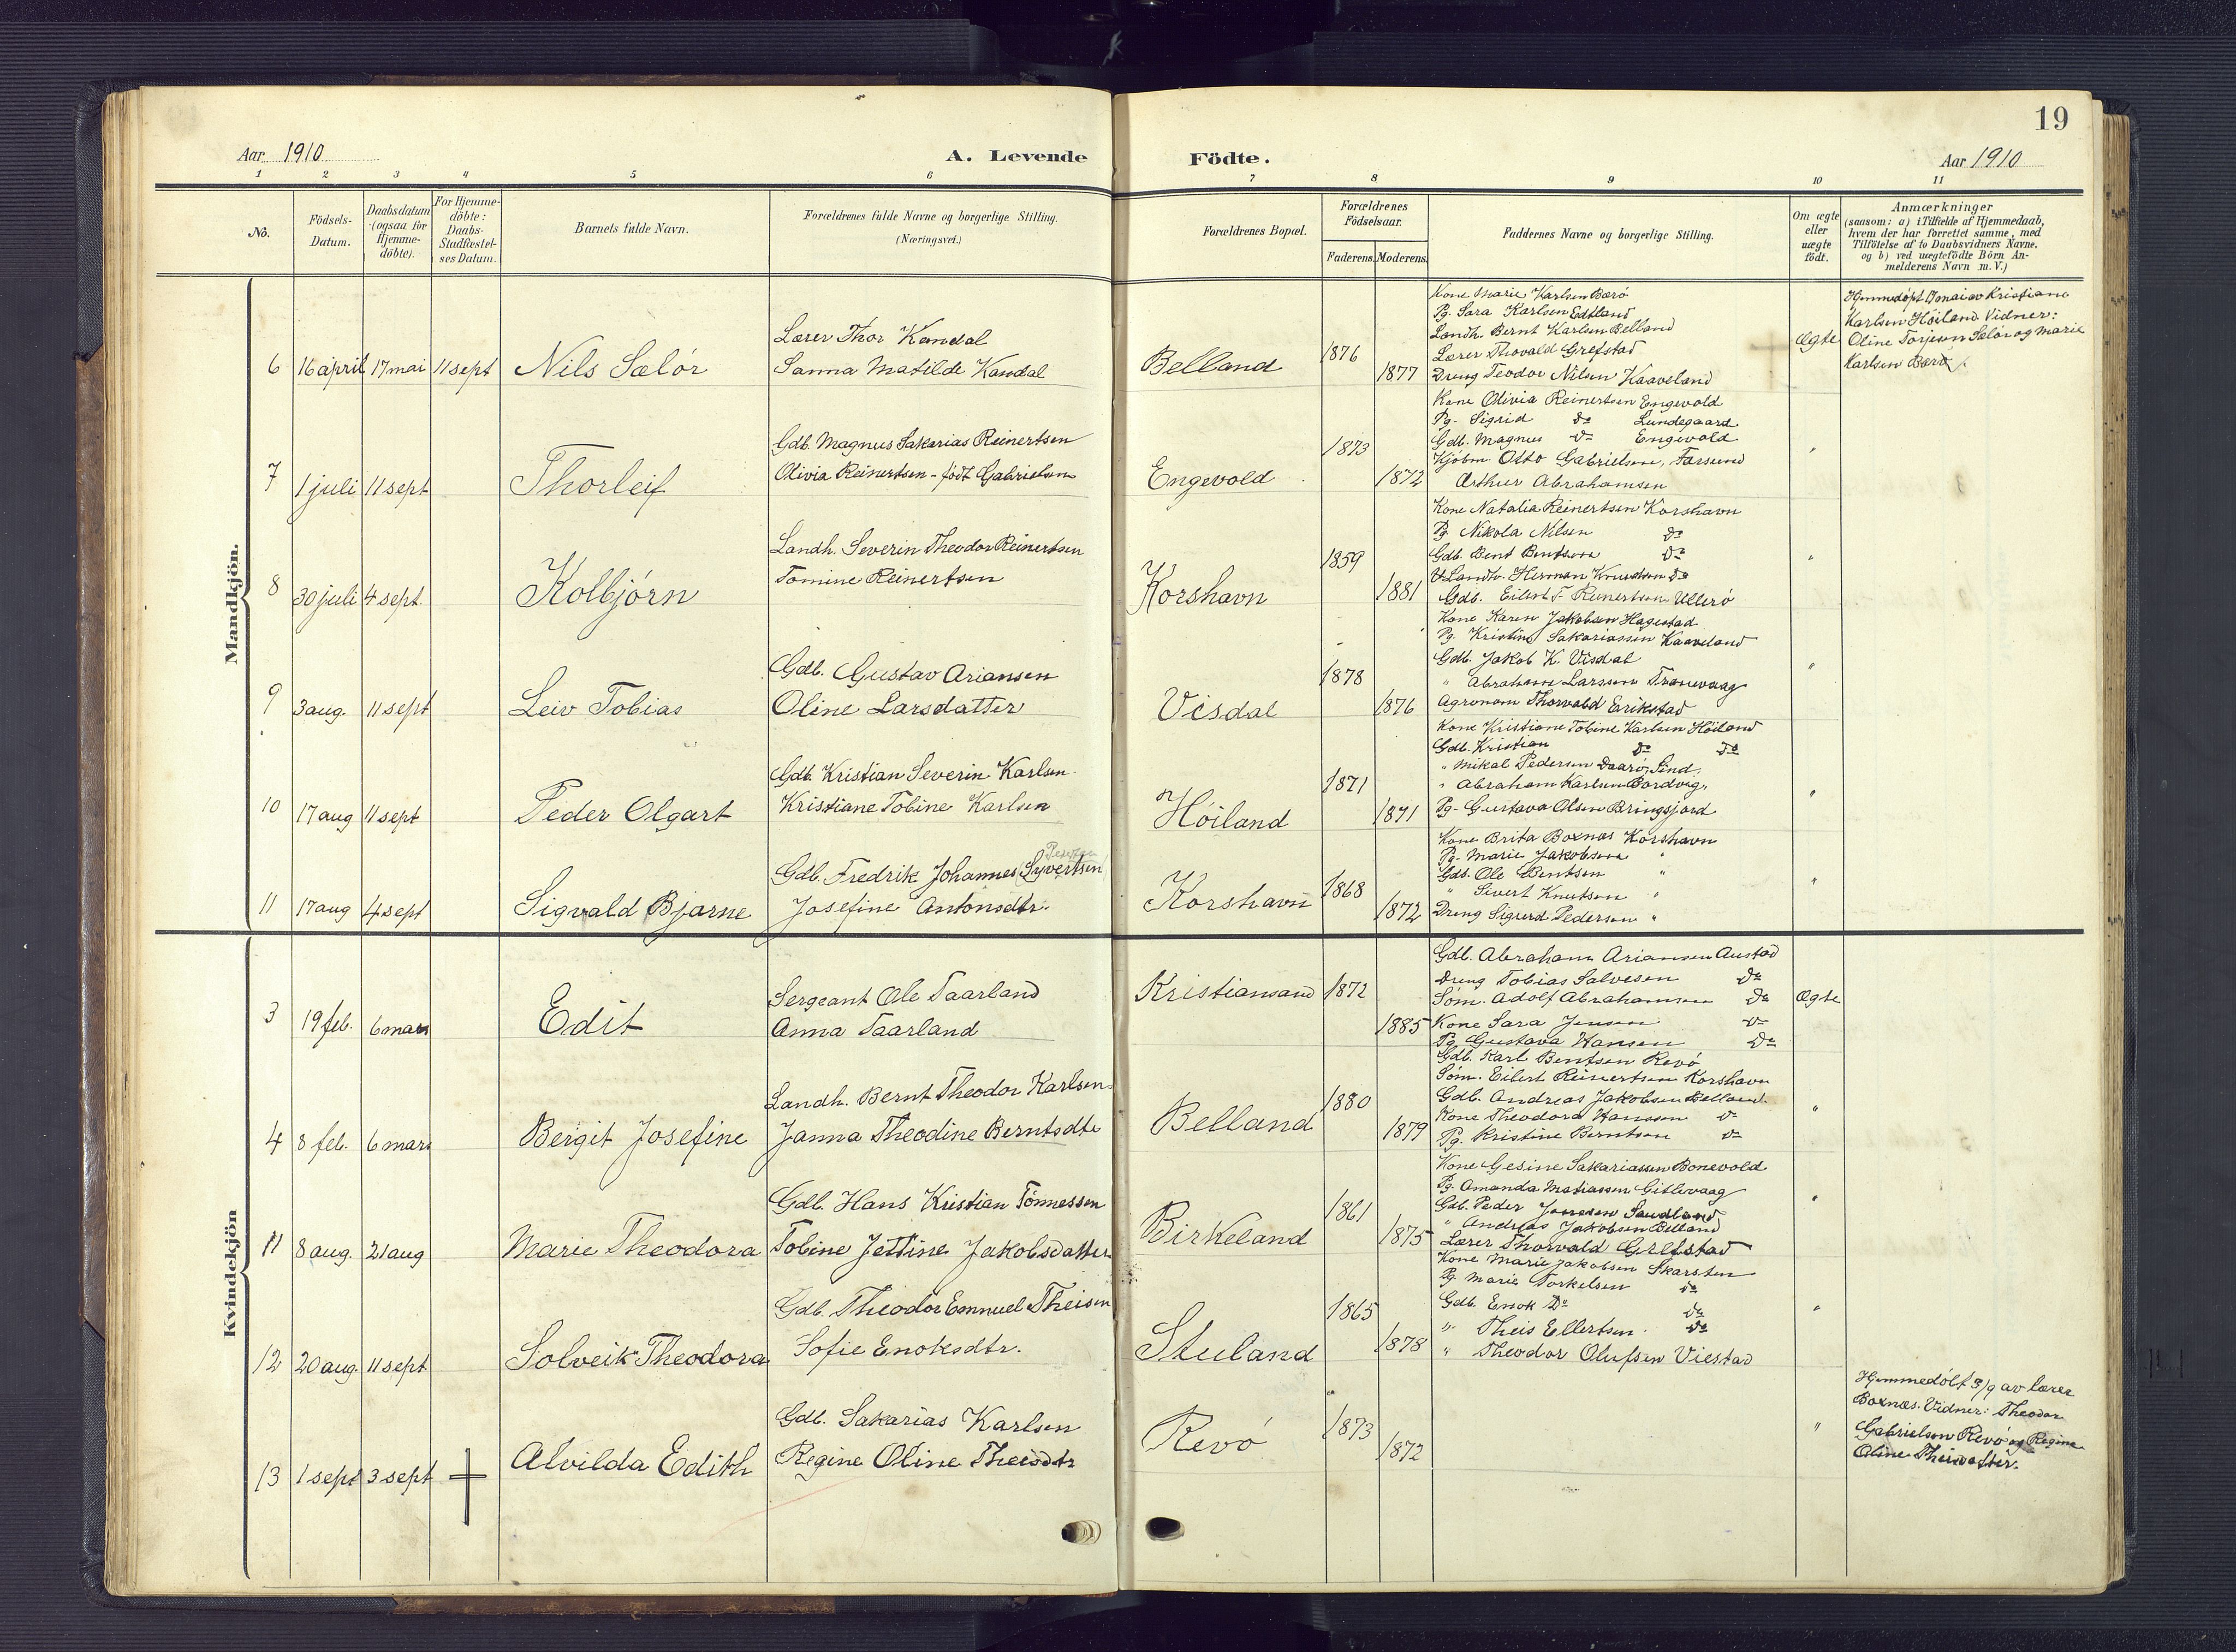 19
Aar 1910
A. Levende
Födte.
Aar 1910
1 2 3 4 5 6 7 8 9 10 11
No.
Födsels-Datum.
Daabsdatum (ogsaa for Hjemme-döbte).
For Hjemme-döbte: Daabs-Stadfæstel-ses Datum.
Barnets fulde Navn.
Forældrenes fulde Navne og borgerlige Stilling.
(Næringsvei.)
Forældrenes Bopæl.
Forældrenes Födselsaar.
Faderens. Moderens.
Faddernes Navne og borgerlige Stilling.
Om ægte eller uægte födt.
Anmærkninger
(saasom: a) i Tilfælde af Hjemmedaab,
hvem der har forrettet samme, med
Tilföielse af to Daabsvidners Navne.
og b) ved uægtefödte Börn An-
melderens Navn m. V.)
Mandkjön.
6 16 april 17 mai 11 sept Nils Sælór
Lærer Thor Kandal
Sanna Matilde Kandal
Belland 1876 1877
Kone Marie Karlsen Bærö
Pg. Sara Karlsen Edtland
Landh. Bernt Karlsen Belland
Lærer Thovald Grefstad
Dreng Teodor Nilsen Kaaveland
Ægte
Hjemmedöpt 17 mai av Kristiane
Karlsen Höiland. Vidner:
Oline Torjesen Sælör og Marie
Karlsen Bærö.
7 1 juli 11 sept Thorleif
Gdb. Magnus Sakarias Reinertsen
Olivia Reinertsen - födt Gabrielsen
Engevold 1873 1872
Kone Olivia Reinertsen Engevold
Pg. Sigrid do Lundegaard
Gdb. Magnus do Engevold
Kjöbm. Otto Gabrielsen, Farsund
Arthur Abrahamsen
"
8 30 juli 4 sept. Kolbjórn
Landh. Severin Theodor Reinertsen
Tomine Reinertsen
Korshavn 1859 1881
Kone Natalia Reinertsen Korshavn
Pg. Nikola Nilsen do
Gdb. Bent Bentsen do
Landh. Herman Knudsen do
Gdb. Eilert F. Reinertsen Ullerö
"
9 3 aug. 11 sept Leiv Tobias
Gdb. Gustav Ariansen
Oline Larsdatter
Visdal 1878 1876
Kone Karen Jakobsen Hagestad
Pg. Kristine Sakariassen Kaaveland
Gdb. Jakob K. Visdal
" Abraham Larssen Tranevaag
Agronom Thorvald Erikstad
"
10 17 aug 11 sept Peder Olgart
Gdb. Kristian Severin Karlsen
Kristiane Tobine Karlsen
Hóiland 1871 1871
Kone Kristiane Tobine Karlsen Höiland
Gdb. Kristian do do
" Mikal Pedersen Daarö, Sind.
" Abraham Karlsen Bordvig.
Pg. Gustava Olsen Bringsjord
"
11 17 aug 4 sept Sigvald Bjarne
Gdb. Fredrik Johannes (Syvertsen)
Josefine Antonsdtr.
Korshavn 1868 1872
Kone Brita Boxnæs Korshavn
Pg. Marie Jakobsen "
Gdb. Ole Bentsen "
" Sivert Knutsen "
Dreng Sigurd Pedersen "
"
Kvindekjön
3 19 feb. 6 mars Edit
Sergeant Ole Taarland
Anna Taarland
Kristiansand 1872 1885
Gdb. Abraham Ariansen Austad
Dreng Tobias Salvesen do
Söm. Adolf Abrahamsen do
Kone Sara Jensen do
Pg. Gustava Hansen do
Ægte
4 8 feb. 6 mars Bergit Josefine
Landh. Bernt Theodor Karlsen
Janna Theodine Berntsdtr
Belland 1880 1879
Gdb. Karl Bentsen Revö
Söm. Eilert Reinertsen Korshavn
Gdb. Andreas Jakobsen Belland.
Kone Theodora Hanssen do
Pg. Kristine Berntsen do
"
11 8 aug. 21 aug Marie Theodora
Gdb. Hans Kristian Tönnessen
Tobine Jettine Jakobsdatter
Birkeland 1861 1875
Kone Gesine Sakariassen Bonevold
Pg. Amanda Matiassen Gitlevaag
Gdb. Peder Jensen Saudland
" Andreas Jakobsen Belland
Lærer Thorvald Grefstad
"
12 20 aug. 11 sept Solveik Theodora
Gdb. Theodor Emnuel Theisen
Sofie Enoksdtr.
Stuland 1865 1878
Kone Marie Jakobsen Skarsten
Pg. Marie Torkelsen do
Gdb. Enok do do
" Theis Ellertsen do
" Theodor Olufsen Viestad
"
13 1 sept 3 sept Alvilda Edith
Gdb. Sakarias Karlsen
Regine Oline Theisdtr
Revó 1873 1872
"
Hjemmedöbt 3/9 av lærer
Boxnæs. Vidner: Theodor
Gabrielsen Revö og Regine
Oline Theisdatter.